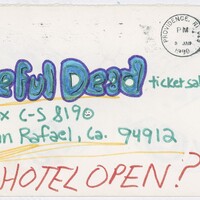 PROVIDENCE, RI
PM
9 JAN
1990
eful Dead ticket sal
x C-S 8190
n Rafael, Ca. 94912
HOTEL OPEN?